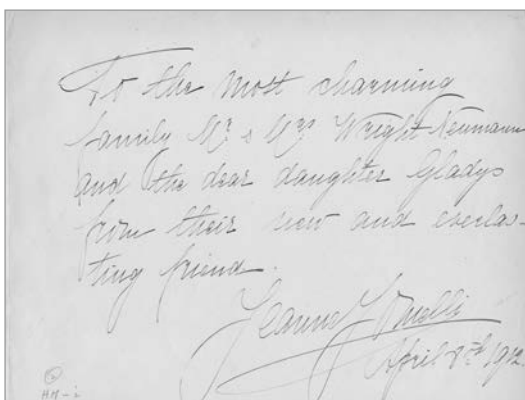 To the most charming
family Mr & Mrs Wright Neumann
and the dear daughter Gladys
from their new and everlas-
ting friend.
Jeanne
April 8th 1912.
HM-2